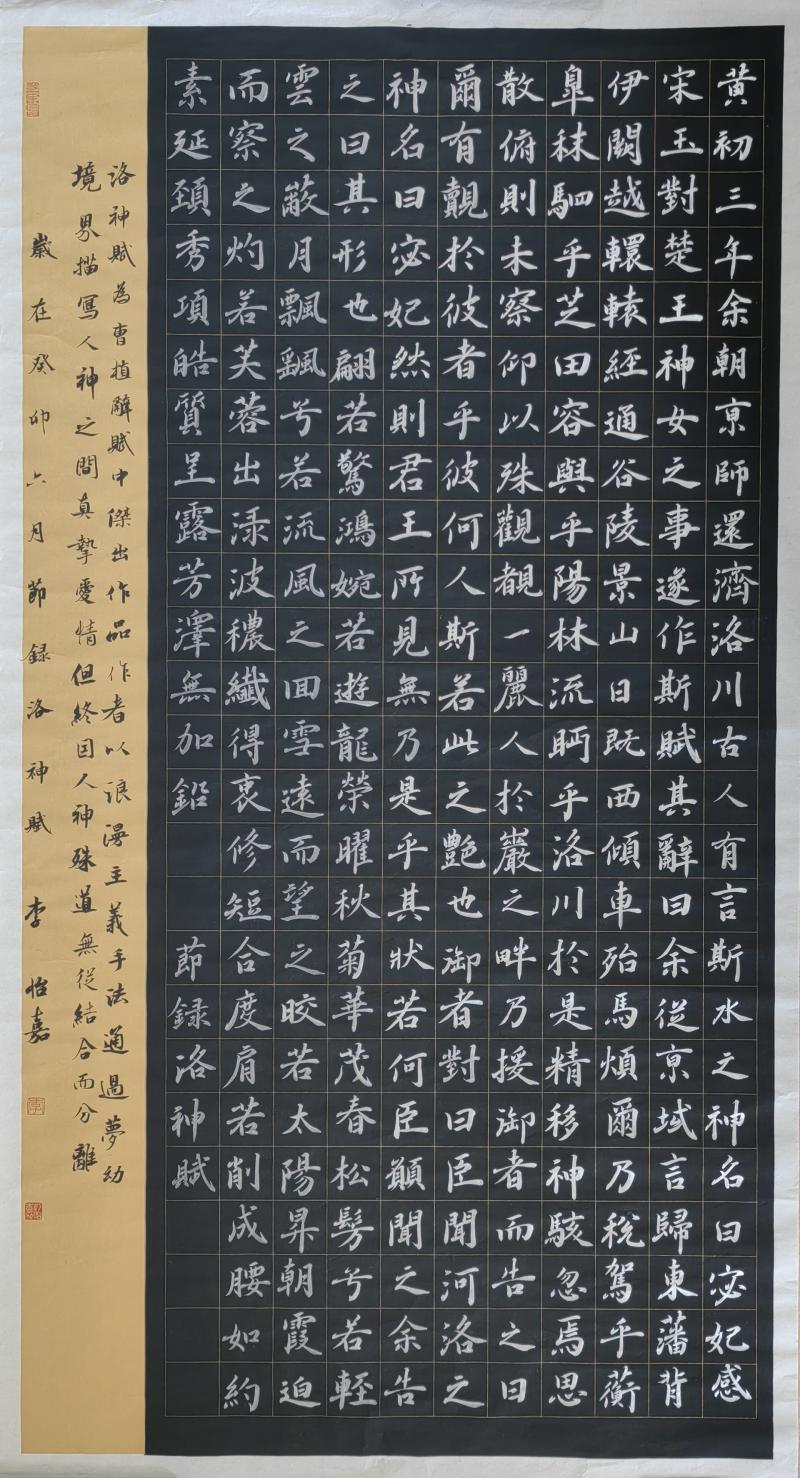 黄初三年余朝亰師還濟洛川古人有言斯水之神名曰宓妃感
宋玉對楚王神女之事遂作斯賦其辭曰余從亰域言歸東藩背
伊闕越轘轅經通谷陵景山日既西傾車殆馬煩爾乃稅駕乎蘅
臯秣駟乎芝田容與乎陽林流眄乎洛川扵是精移神駭忽焉思
散俯則未察仰以殊觀覩一麗人扵巖之畔乃援御者而告之曰
爾有覿扵彼者乎彼何人斯若此之艷也御者對曰臣聞河洛之
神名曰宓妃然則君王所見無乃是乎其狀若何臣願聞之余告
之曰其形也翩若驚鴻婉若遊龍榮曜秋菊華茂春松髣兮若輕
雲之蔽月飄颻兮若流風之回雪遠而望之皎若太陽昇朝霞迫
而察之灼若芙蓉出渌波穠纖得衷修短合度肩若削成腰如約
素延頸秀項皓質呈露芳澤無加鉛 節録洛神賦
洛神賦為曹植辭賦中傑出作品作者以浪漫主義手法通過夢幻
境界描寫人神之間真摯愛情但終因人神殊道無從結合而分離
歲在癸卯六月節録洛神賦 李怡嘉